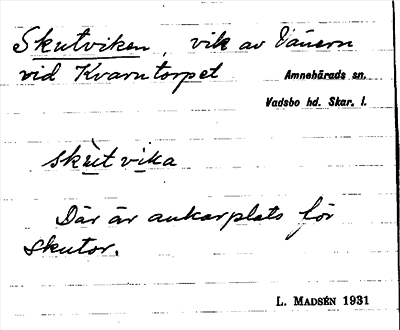 Skutviken, vik av Vänern
vid Kvarntorpet
Amnehärads sn.
Vadsbo hd. Skar. l.
skùt vika
Där är ankarplats för
skutor.
L. MADSÉN 1931